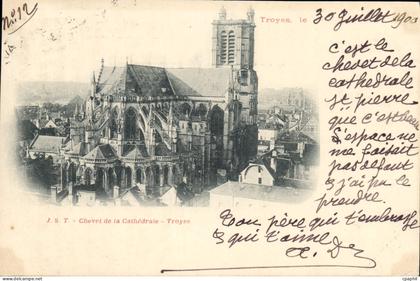 No. 12
Troyes, le 30 Juillet 1900
C'est le
chevet de la
cathédrale
St pierre
que c'est.
L'espace ne
me faisait
pas défaut
si j'ai pu le
prendre.
Ton père qui t'embrasse
& qui t'aime
J. S. T. - Chevet de la Cathédrale - Troyes
cparama.com